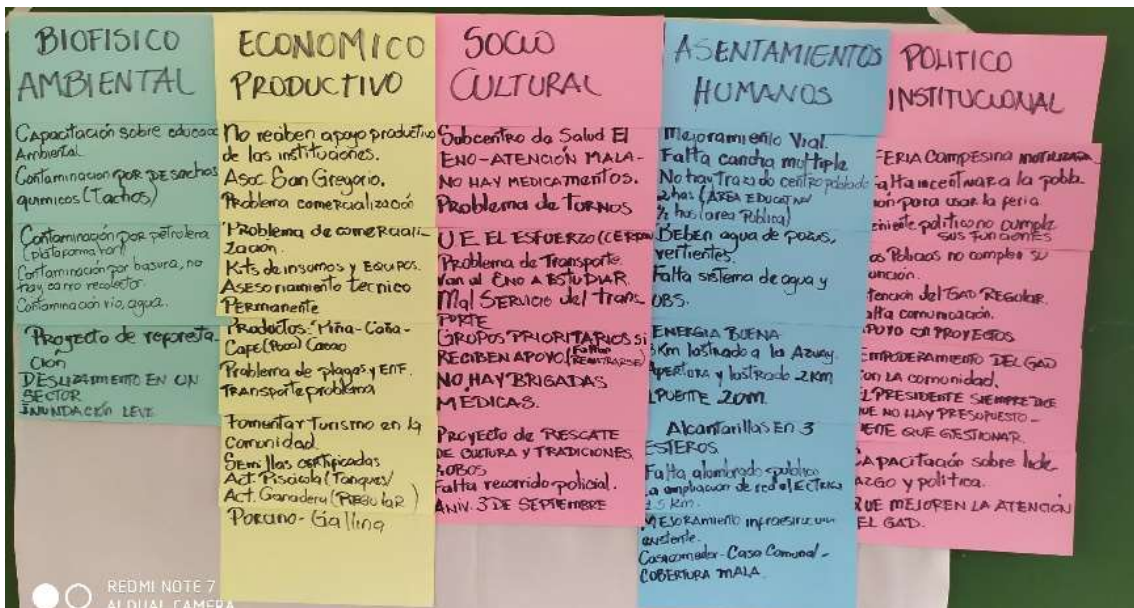 BIOFISICO
AMBIENTAL
Capacitación sobre educac
Ambiental
Contaminacion por desechos
quimicos (Tachos)
Contaminación por petrolera
(plataforma)
Contaminación por basura, no
hay carro recolector.
Contaminación rio, agua.
Proyecto de reforesta-
ción
DESLIZAMIENTO EN UN
SECTOR
INUNDACIÓN LEVE
ECONOMICO
PRODUCTIVO
No reciben apoyo productivo
de las instituciones.
Asoc. San Gregorio.
Problema comercialización
Problema de comerciali-
zación.
Kits de insumos y EQUIPOS.
Asesoramiento tecnico
Permanente
Productos: Piña-Caña-
Café (Poco) Cacao
Problema de plagas y ENF.
Transporte problema
Fomentar Turismo en la
Comunidad.
Semillas certificadas
Act. Piscicola (Tanques)
Act. Ganadera (REGULAR)
Porcino-Gallina
SOCIO
CULTURAL
Subcentro de Salud El
ENO-ATENCIÓN MALA-
NO HAY MEDICAMENTOS.
Problema de TURNOS
U.E EL ESFUERZO (CERRADA
Problema de Transporte.
Van al ENO A ESTUDIAR.
Mal SERVICIO del trans-
PORTE
GRUPOS PRIORITARIOS SI
RECIBEN APOYO (Faltan REGISTRARSE)
NO HAY BRIGADAS
MEDICAS.
PROYECTO de RESCATE
DE CULTURA Y TRADICIONES.
ROBOS
Falta recorrido policial.
ANIV. 3 DE SEPTIEMBRE
ASENTAMIENTOS
HUMANOS
Mejoramiento Vial.
Falta cancha multiple
No hay Trazado centro poblado
2 has (AREA EDUCATIVA
½ has (area Publica)
Beben agua de pozos,
vertientes.
Falta sistema de agua y
UBS.
ENERGIA BUENA
Km lastrado a la Azuay.
APERTURA y lastrado 2 KM
PUENTE 20m.
Alcantarillas En 3
ESTEROS
Falta alumbrado publico
La ampliación de red elECTRICA
Km.
MEJORAMIENTO infraestructura
existente.
Casa comedor-Casa Comunal-
COBERTURA MALA.
POLITICO
INSTITUCIONAL
FERIA CAMPESINA
Falta incentivar a la pobla
ión para usar la feria.
eniente politico no cumple
sus funciones
os Policias no cumplen su
unción.
tención del GAD REGULAR.
alta comunicación.
POYO CON PROYECTOS
EMPODERAMIENTO DEL GAD
ON LA comunidad.
EL PRESIDENTE SIEMPRE DICE
UE NO HAY PRESUPUESTO-
IENE QUE GESTIONAR.
APACITACIÓN sobre lide
azgo y politica.
QUE MEJOREN LA ATENCIÓN
EL GAD.
REDMI NOTE 7
AI DUAL CAMERA